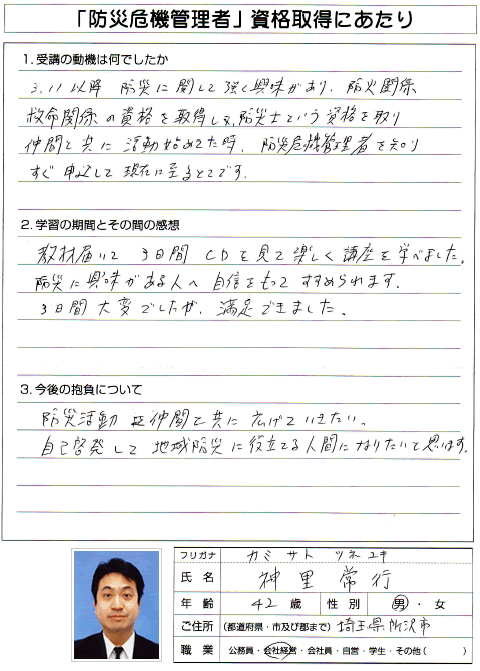 「防災危機管理者」資格取得にあたり
1.受講の動機は何でしたか
3.11以降 防災に関して強く興味があり、防火関係
救命関係の資格を取得し又、防災士という資格を取り
仲間と共に 活動始めてた時、防災危機管理者を知り
すぐ申込して現在に至るとこです。
2.学習の期間とその間の感想
教材届いて 3日間 CDを見て楽しく講座を学べました。
防災に興味がある人へ 自信をもってすすめられます。
3日間大変でしたが、満足できました。
3.今後の抱負について
防災活動を仲間と共に広げていきたい。
自己啓発して地域防災に役立てる人間になりたいと思います。
フリガナ カミサト ツネユキ
氏名 神里常行
年齢 42歳 性別 男・女
ご住所 (都道府県・市及び郡まで) 埼玉県所沢市
職業 公務員・会社経営・会社員・自営・学生・その他( )